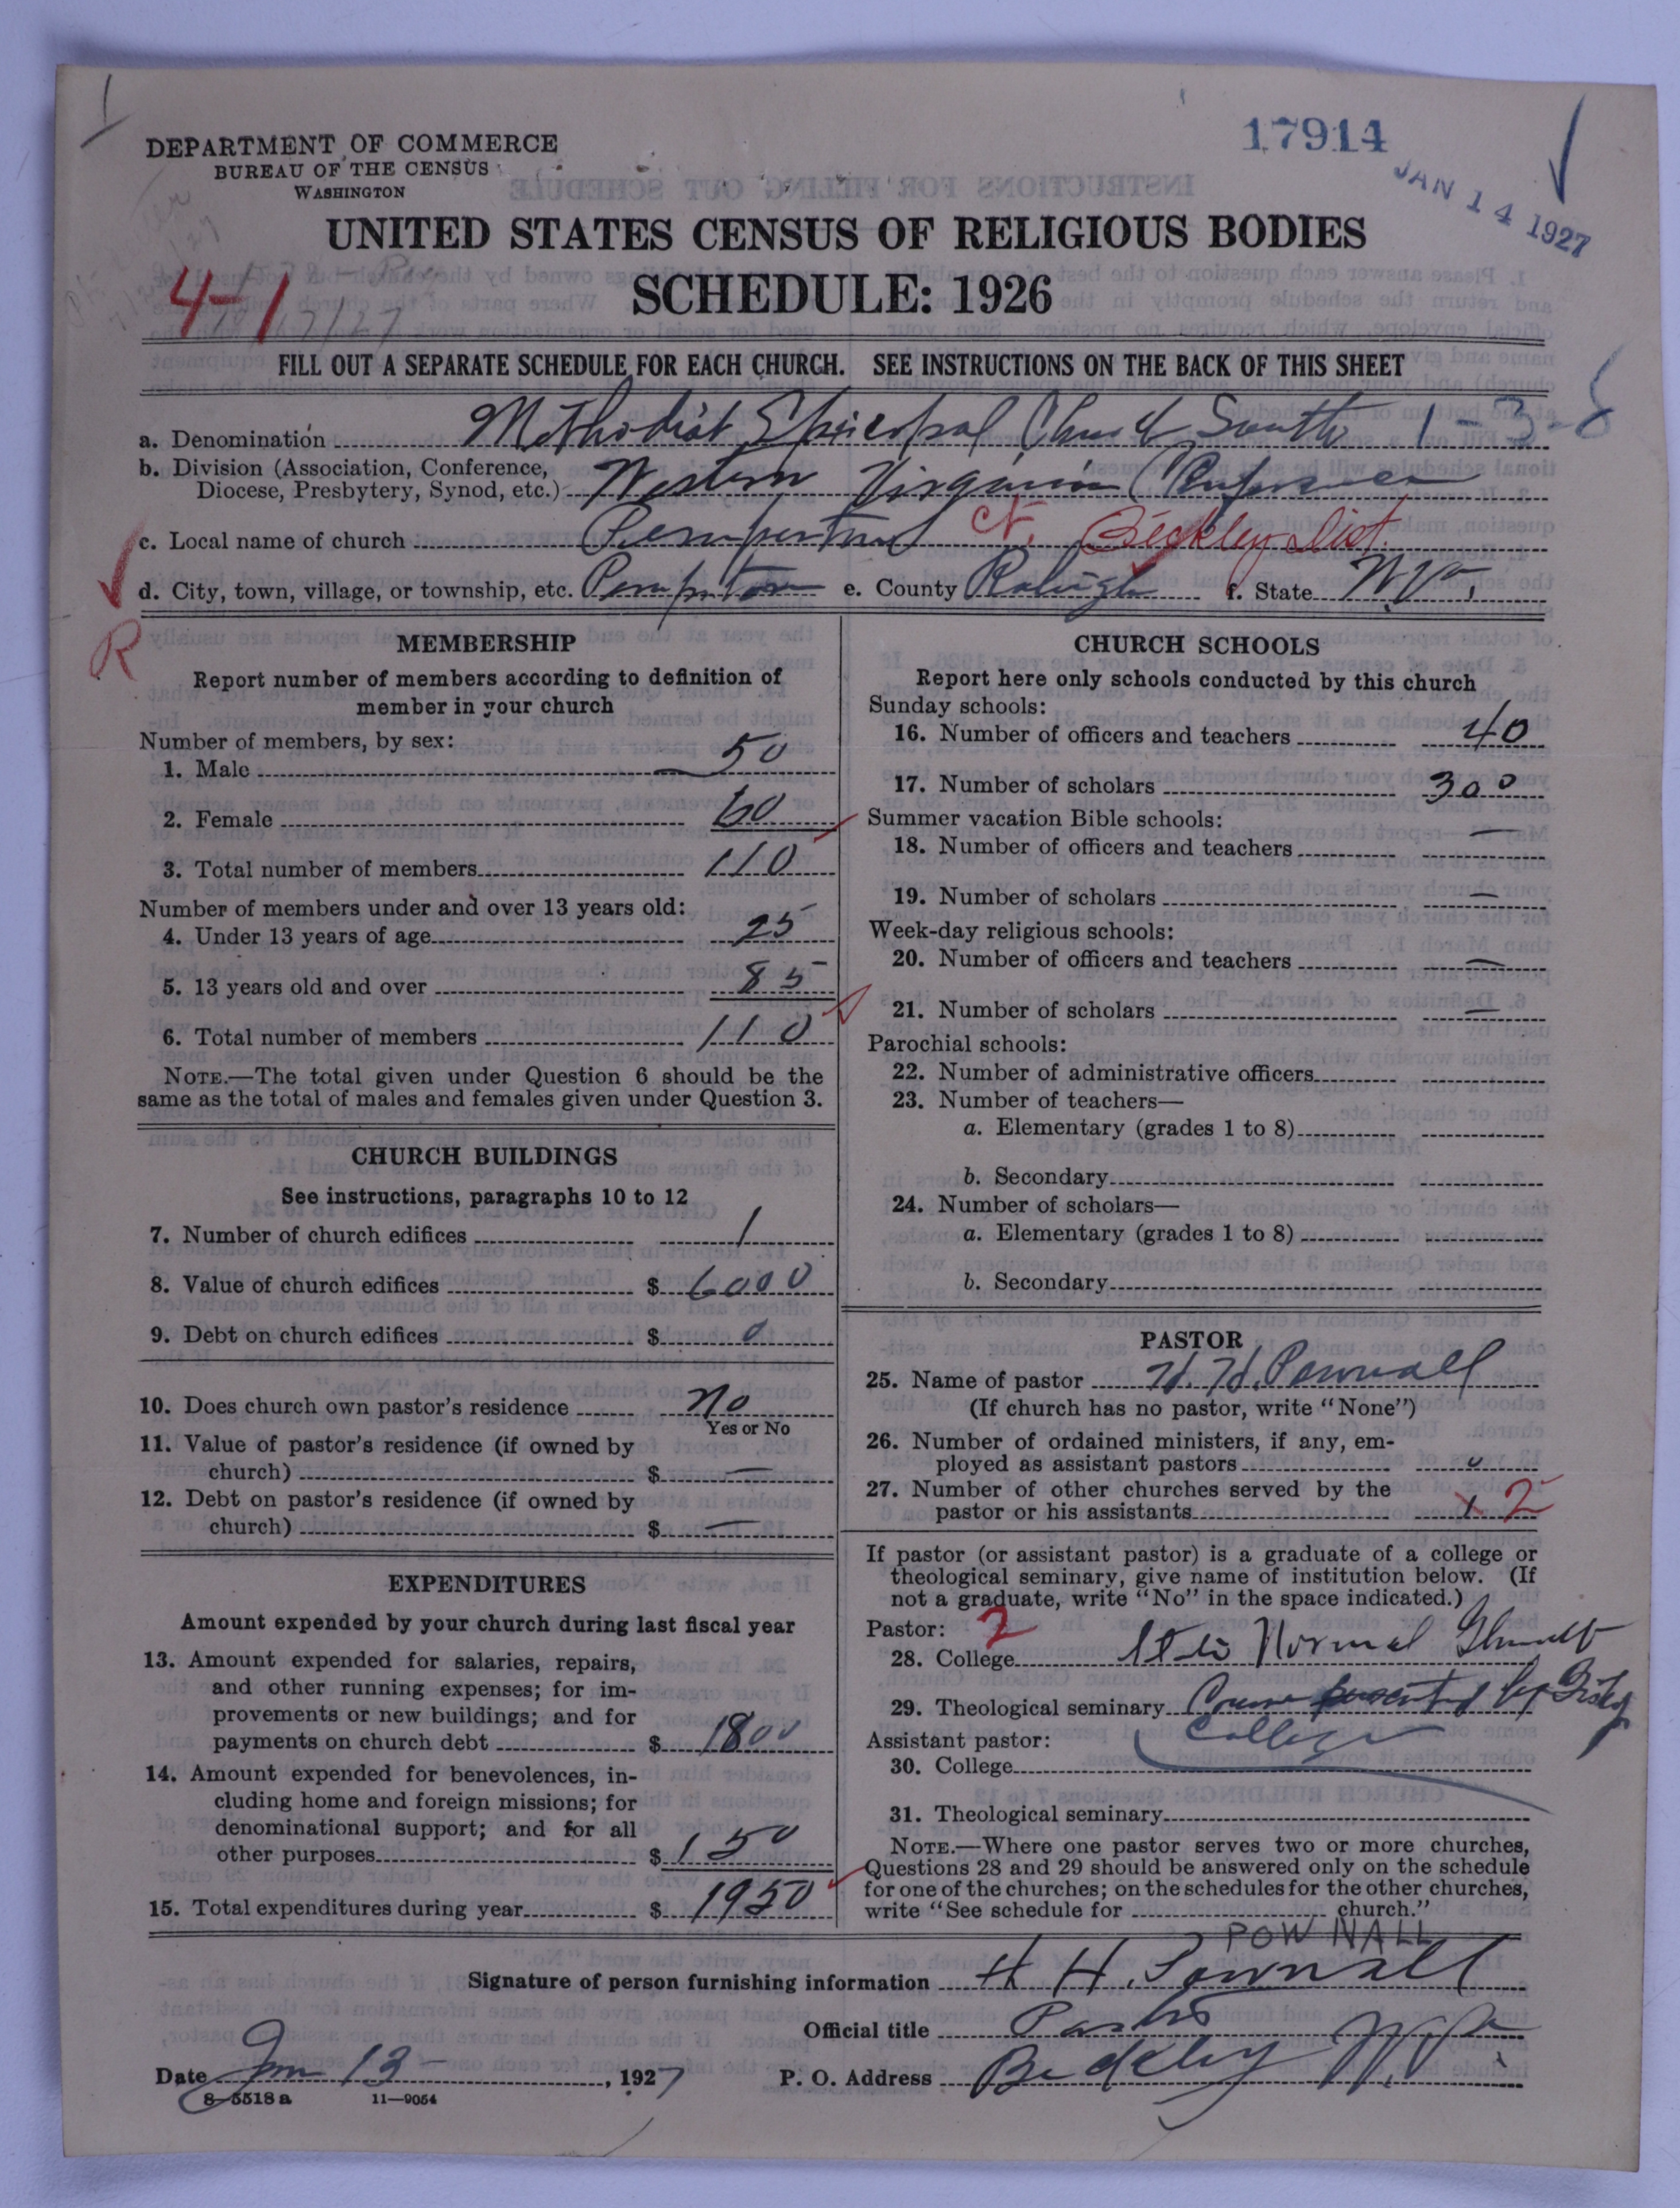 17914
JAN 14 1927
DEPARTMENT OF COMMERCE
BUREAU OF THE CENSUS
WASHINGTON
UNITED STATES CENSUS OF RELIGIOUS BODIES
4-1
SCHEDULE: 1926
FILL OUT A SEPARATE SCHEDULE FOR EACH CHURCH. SEE INSTRUCTIONS ON THE BACK OF THIS SHEET
a. Denomination Methodist Episcopal Church South 1-3-8
b. Division (Association, Conference,
Diocese, Presbytery, Synod, etc.) Western Virginia Conference
c. Local name of church Pemperton Ct. Beckley Dist.
d. City, town, village, or township, etc. Pemperton e. County Raleigh f. State W. Va.
R
MEMBERSHIP
Report number of members according to definition of
member in your church
Number of members, by sex:
1. Male 50
2. Female 60
3. Total number of members 110
Number of members under and over 13 years old:
4. Under 13 years of age 25
5. 13 years old and over 85
6. Total number of members 110
NOTE.—The total given under Question 6 should be the
same as the total of males and females given under Question 3.
CHURCH BUILDINGS
See instructions, paragraphs 10 to 12
7. Number of church edifices 1
8. Value of church edifices $ 6000
9. Debt on church edifices $ 0
10. Does church own pastor's residence No
Yes or No
11. Value of pastor's residence (if owned by
church) $ —
12. Debt on pastor's residence (if owned by
church) $ —
EXPENDITURES
Amount expended by your church during last fiscal year
13. Amount expended for salaries, repairs,
and other running expenses; for im-
provements or new buildings; and for
payments on church debt $ 1800
14. Amount expended for benevolences, in-
cluding home and foreign missions; for
denominational support; and for all
other purposes $ 150
15. Total expenditures during year $ 1950
CHURCH SCHOOLS
Report here only schools conducted by this church
Sunday schools:
16. Number of officers and teachers 40
17. Number of scholars 300
Summer vacation Bible schools:
18. Number of officers and teachers —
19. Number of scholars —
Week-day religious schools:
20. Number of officers and teachers —
21. Number of scholars —
Parochial schools:
22. Number of administrative officers
23. Number of teachers—
a. Elementary (grades 1 to 8)
b. Secondary
24. Number of scholars—
a. Elementary (grades 1 to 8)
b. Secondary
PASTOR
25. Name of pastor H. H. Pownall
(If church has no pastor, write "None")
26. Number of ordained ministers, if any, em-
ployed as assistant pastors 0
27. Number of other churches served by the
pastor or his assistants 1 2
If pastor (or assistant pastor) is a graduate of a college or
theological seminary, give name of institution below. (If
not a graduate, write "No" in the space indicated.)
Pastor: 2
28. College State Normal
29. Theological seminary Course by
College
Assistant pastor:
30. College
31. Theological seminary
NOTE.—Where one pastor serves two or more churches,
Questions 28 and 29 should be answered only on the schedule
for one of the churches; on the schedules for the other churches,
write "See schedule for church."
POWNALL
Signature of person furnishing information H. H. Pownall
Official title Pastor
Date Jan 13 , 1927 P. O. Address Beckley W. Va.
8-5518 a 11-9054